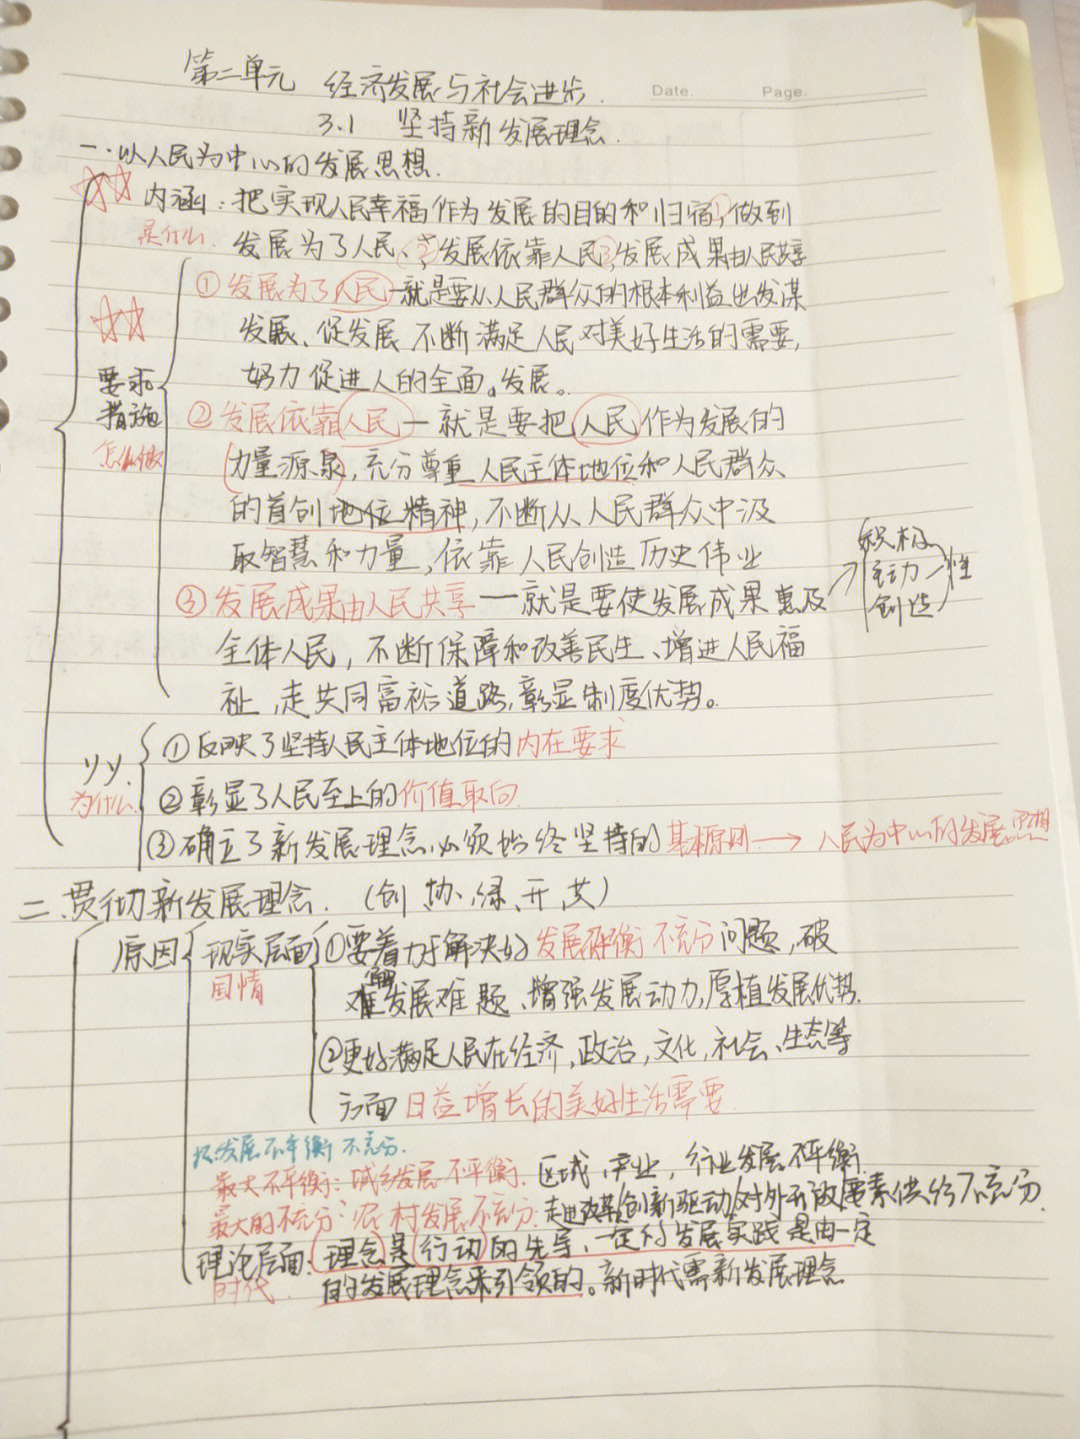 第二单元 经济发展与社会进步.
Date. Page.
3.1 坚持新发展理念.
一.以人民为中心的发展思想.
内涵:把实现人民幸福作为发展的目的和归宿,①做到
是什么. 发展为了人民、②发展依靠人民,③发展成果由人民共享
①发展为了人民—就是要从人民群众的根本利益出发谋
发展、促发展 不断满足人民对美好生活的需要,
要求 努力促进人的全面。发展。
措施 ②发展依靠人民—就是要把人民作为发展的
怎么做 力量源泉,充分尊重人民主体地位和人民群众
的首创地位精神,不断从人民群众中汲
取智慧和力量,依靠人民创造历史伟业
积极
主动 性
创造
③发展成果由人民共享—就是要使发展成果惠及
全体人民,不断保障和改善民生、增进人民福
祉,走共同富裕道路,彰显制度优势。
①反映了坚持人民主体地位的内在要求
为什么. ②彰显了人民至上的价值取向
③确立了新发展理念必须始终坚持的基本原则→人民为中心的发展思想
二.贯彻新发展理念. (创、协、绿、开、共)
原因 现实层面 ①要着力于解决好发展不平衡不充分问题,破
国情 解
难发展难题、增强发展动力,厚植发展优势.
②更好满足人民在经济,政治,文化,社会、生态等
方面日益增长的美好生活需要.
发展不平衡 不充分.
最大不平衡:城乡发展不平衡. 区域,产业,行业发展不平衡.
最大的不充分:农村发展不充分. 改革,创新驱动,对外开放,要素供给不充分.
理论层面:理念是行动的先导,一定的发展实践是由一定
时代. 的发展理念来引领的。新时代需新发展理念